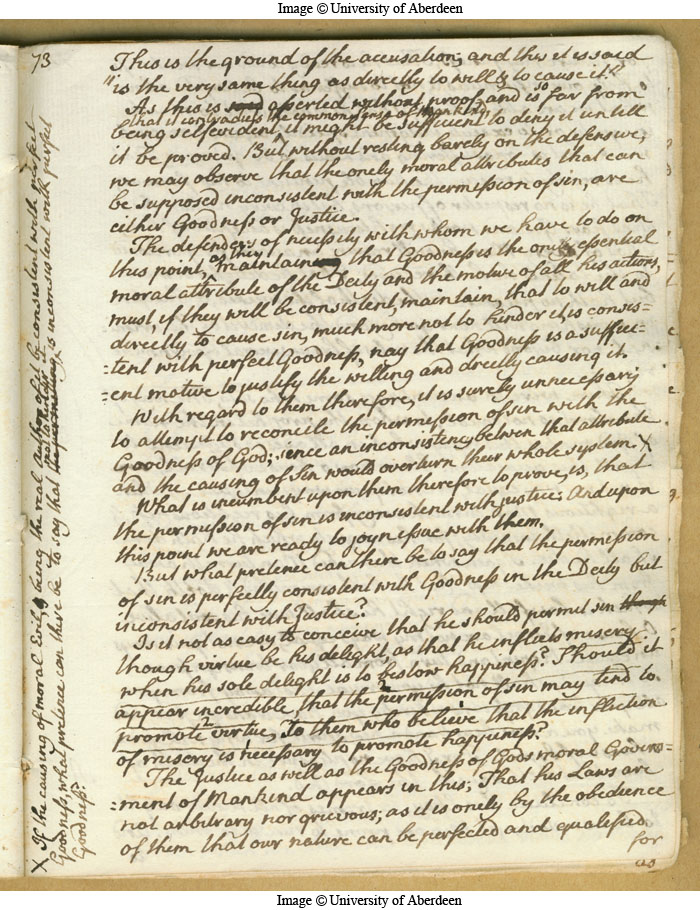 Image © University of Aberdeen
73
This is the ground of the accusation; and this it is said
"is the very same thing as directly to will & to cause it."
As this is said asserted without proof, and is so far from
that it contradicts the common sense of mankind
being selfevident, it might be sufficient to deny it untill
it be proved. But without resting barely on the defensive,
we may observe that the onely moral attributes that can
be supposed inconsistent with the permission of sin, are
either Goodness or Justice.
The defenders of necessity with whom we have to do on
this point, as they maintain that Goodness is the onely essential
moral attribute of the Deity and the motive of all his actions,
must, if they will be consistent, maintain, that to will and
directly to cause sin, much more not to hinder it, is consis=
=tent with perfect Goodness, nay that Goodness is a suffici=
=ent motive to justify the willing and directly causing it.
With regard to them therefore, it is surely unnecessary
to attempt to reconcile the permission of sin with the
Goodness of God; since an inconsistency betwen that attribute
and the causing of Sin would overturn their whole system. X
What is incumbent upon them therefore to prove, is, that
the permission of sin is inconsistent with justice: And upon
this point we are ready to joyn issue with them.
But what pretence can there be to say that the permission
of sin is perfectly consistent with Goodness in the Deity but
inconsistent with Justice?
Is it not as easy to conceive that he should permit sin though
though virtue be his delight, as that he inflicts misery
when his sole delight is to bestow happiness? Should it
appear incredible that the permission of sin may tend to
promote virtue, To them who believe that the infliction
of misery is necessary to promote happiness?
The Justice as well as the Goodness of Gods moral Govern=
=ment of Mankind appears in this; That his Laws are
not arbitrary nor grievous; as it is onely by the obedience
of them that our nature can be perfected and qualified
for
X If the causing of moral Evil, & being the real Author of it be consistent with perfect
Goodness, what pretence can there be to say that not to hinder it is inconsistent with perfect
Goodness?
Image © University of Aberdeen